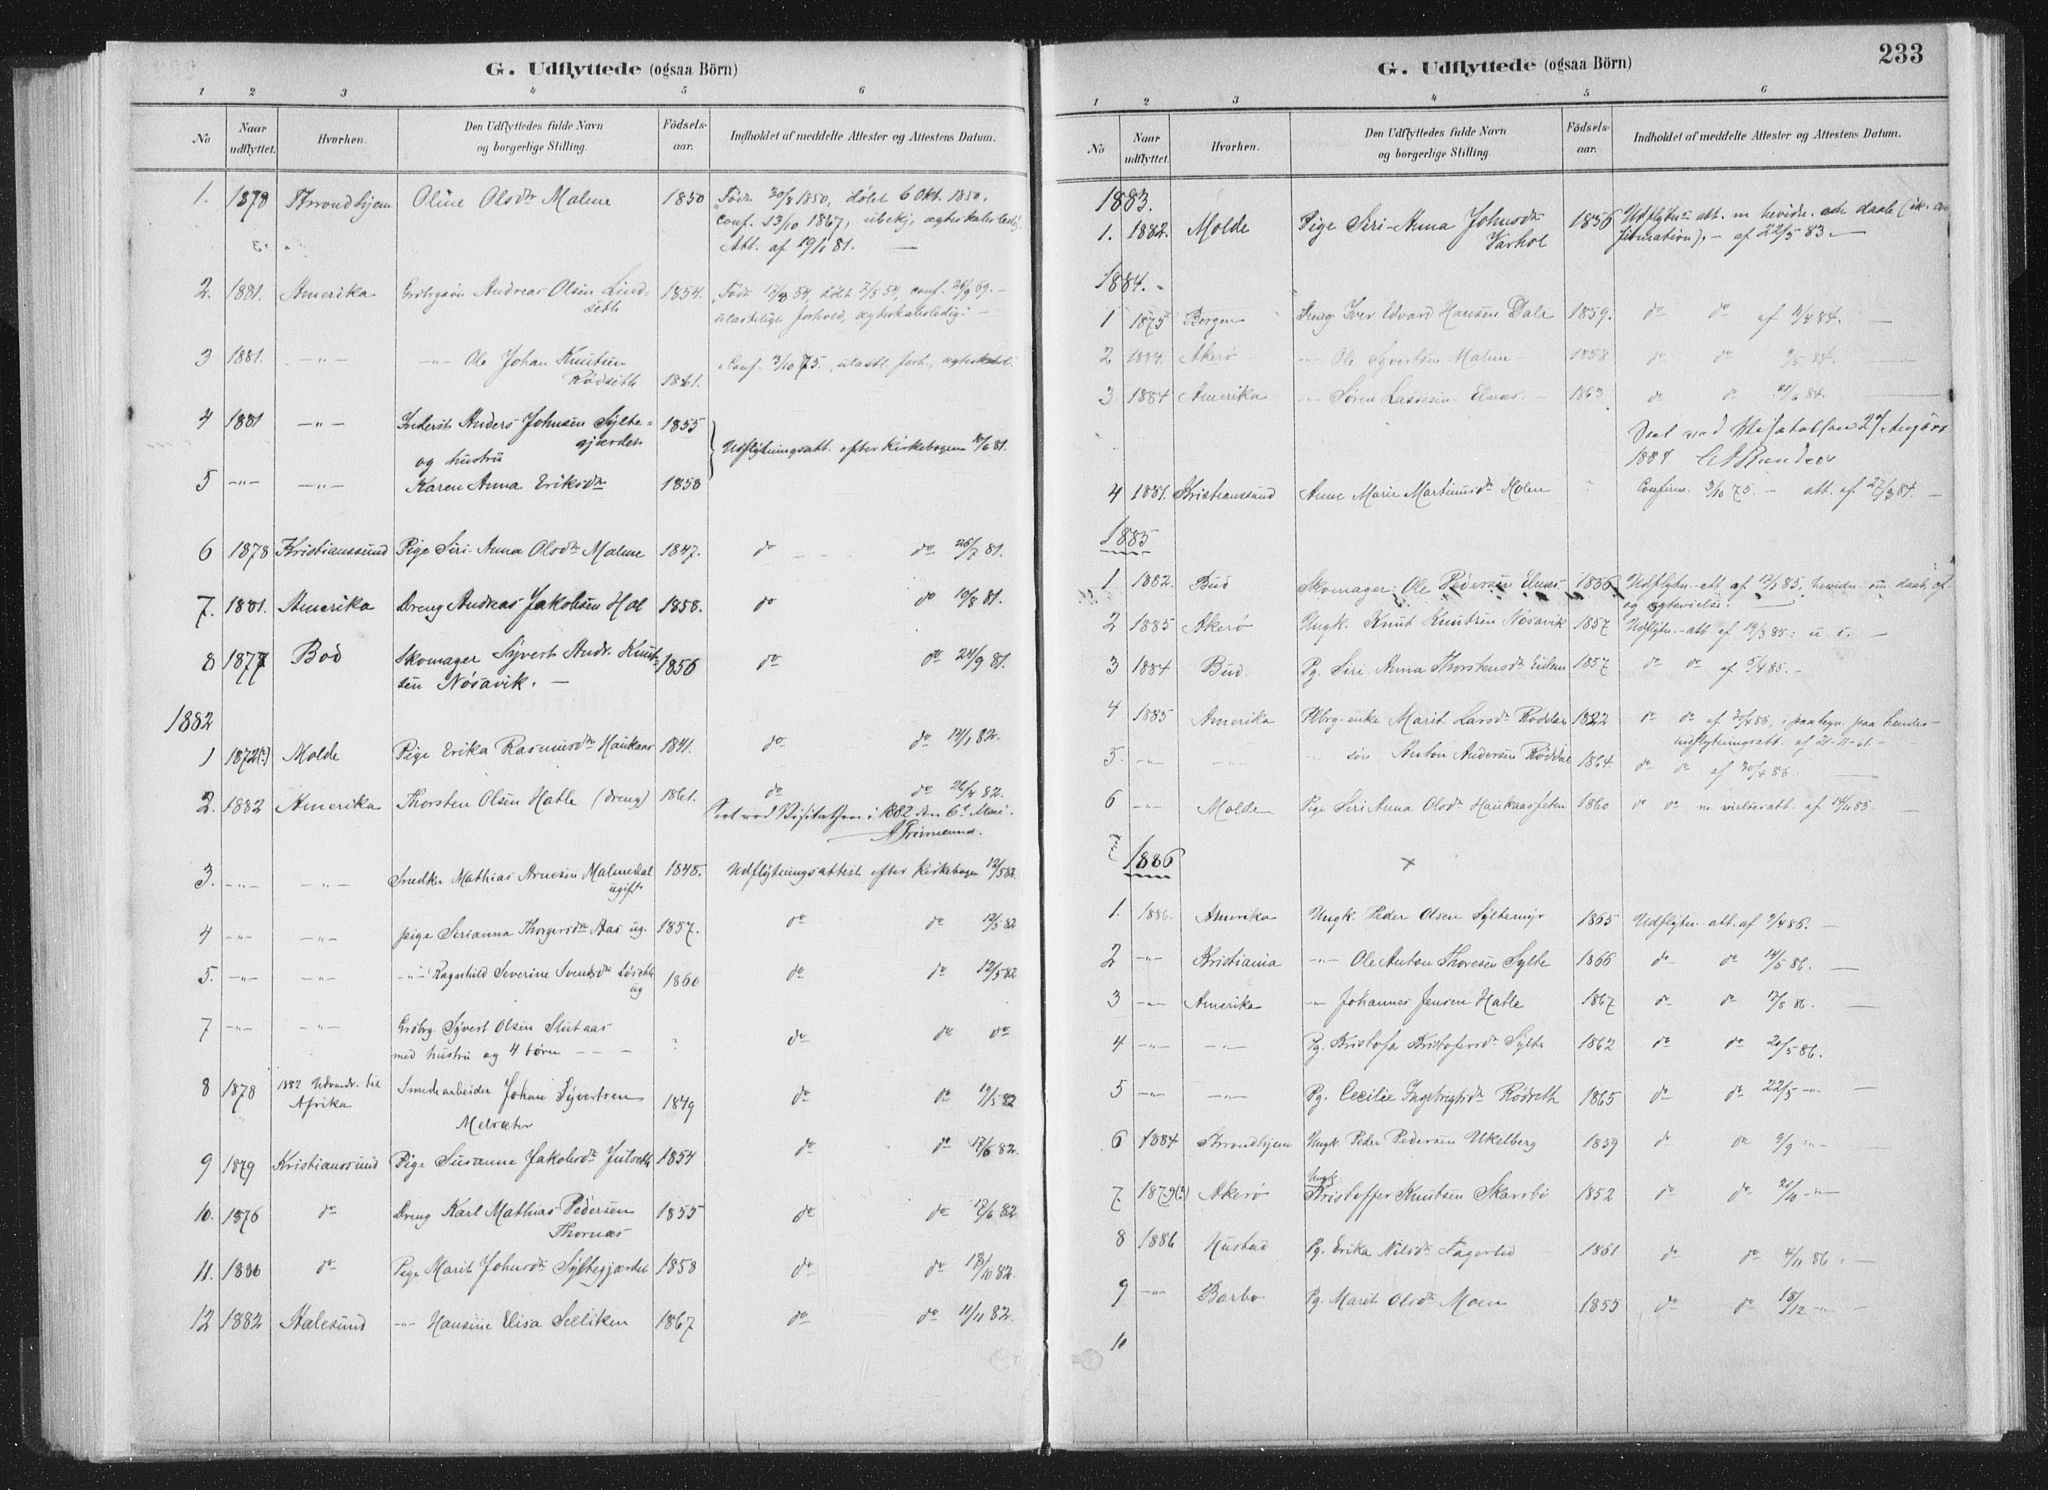 G. Udflyttede (ogsaa Börn)
1 2 3 4 5 6
No Naar udflyttet. Hvorhen. Den Udflyttedes fulde Navn og borgerlige Stilling. Fødsels-aar. Indholdet af meddelte Attester og Attestens Datum.
1. 1878 Throndhjem Oline Olsdr Malme 1850 Født 30/8 1850, døbt 6 Okt. 1850,
conf. 13/10 1867, ubekj. ægteskabsledig.
Att. af 19/1 81. —
2. 1881. Amerika Grdbrgsøn Andreas Olsen Lind- 1854.
seth
ulasteligt forhold, ægteskabsledig. —
3 1881. —"— —"— Ole Johan Knutsen conf. 3/10 75.
Rødseth 1861.
4 1881 —"— Inderst Anders Johnsen Sylte- 1855
gjærdet Udflytningsatt. efter Kirkebogen
og hustru
5 —"— —"— Karen Anna Eriksdr 1858
6 1878 Kristianssund Pige Siri Anna Olsdr Malme 1847. do do 26/7 81.
7. 1881. Amerika Dreng Andreas Jakobsen Hol 1858. do do 19/8 81.
8 1877 Bod Skomager Syvert Andr. Knut- 1856 do do 24/9 81.
sen Nøsavik. —
1882
1 1872(?) Molde Pige Erika Rasmusdr Haukaas 1841. do do 14/1 82.
2. 1882 Amerika Thorsten Olsen Hatle (dreng) 1861. do do 26/4 82.
Seet ved Visitatsen i 1882 den 6te Mai.
3. —"— —"— Snedker Mathias Arnesen Malmedal 1848. Udflytningsattest efter Kirkebogen 12/5 82.
ugift
4 —"— —"— pige Serianna Thorgersdr Aas ug. 1857. do do 12/5 82
5. —"— —"— —"— Ragnhild Severine Svendsdr 1860 do do 12/5 82
ug
7 —"— —"— Grdbrg. Syvert Olsen Slutaas
med hustru og 4 børn — — — do do do
8 1878 1882 Udvandr. til Smedearbeider Johan Syvertsen 1849 do do 19/5 82
Afrika Melsæter
9 1879 Kristianssund Pige Susanne Jakobsdr Julseth 1854 do do 17/6 82.
10. 1876 do Dreng Karl Mathias Pedersen 1855 do do 17/6 82.
Thornæs
11. 1880 do Pige Marit Johnsdr Syltegjærdet 1858 do do 13/10 82.
12 1882 Aalesund —"— Hansine Elisa Selliken 1867 do do 11/11 82.
233
G. Udflyttede (ogsaa Börn)
1 2 3 4 5 6
No Naar udflyttet. Hvorhen. Den Udflyttedes fulde Navn og borgerlige Stilling. Fødsels-aar. Indholdet af meddelte Attester og Attestens Datum.
1883.
1. 1882. Molde Pige Siri-Anna Johnsdr 1856 Udflytn. att. m bevidn. om daab (ik. con
Varhol firmation). — af 22/5 83. —
1884. -
1 1875 Bergen Dreng Iver Edvard Hansen Dale 1859. do do af 2/4 84. —
2 1884. Akerø —"— Ole Syvertsen Malme 1858 do do 9/5 84. —
3 1884 Amerika —"— Søren Lassesen Elnæs. — 1863 do do 21/6 84. —
Seet ved Visitatsen 27 August
1884
4 1881. Kristianssund Anne Marie Martinusdr Holen ? Confirm. 3/10 75. — att. af 27/3 84. —
1885
1 1882. Bud Skomager Ole Pedersen Elnæs 1836 Udflytn.-att af 12/1 85, bevidn. om daab, cf.
og ægtevielse.
2 1885 Akerø Ungk. Knut Knutsen Nøsavik 1857 Udflytn.-att af 19/3 85: u. s. —
3 1884 Bud. Pg. Siri Anna Thorstensdr Eidem 1857 do do af 5/4 85. —
4 1885 Amerika Marit Larsdr Røddal 1822 do do af 20/4 85, paategn. paa hendes
udflytningsatt. af 21-11-61. —
5. —"— —"— søn Anton Andersen Røddal 1864. do do af 20/4 85. —
6 —"— Molde Pige Siri Anna Olsdr Haukaasfeten 1860 do do m vielseatt. af 14/11 85 —
7
1886
1. 1886. Amerika Ungk. Peder Olsen Syltemyr 1865 Udflytn. att. af 9/4 86. —
2 —"— Kristiania —"— Ole Anton Thoresen Sylte 1866 do do 14/5 86. —
3 —"— Amerika —"— Johannes Jensen Hatle 1867 do do 17/5 86. —
4 —"— —"— Pg. Kristofa Kristofersdr Sylte 1862 do do 20/5 86.
5 —"— —"— Pg. Cecilie Ingebrigtsdr Rødseth 1865 do do 22/5 —"— —
6 1884 Throndhjem Ungk. Peder Pedersen Ukelberg 1859 do do 2/9 —"—
7 1879(?) Akerø Ungk Kristoffer Knutsen Skarsbø 1852 do do 21/10 —"—
8 1886 Hustad Pg. Erika Nilsdr Fagerlid 1861 do do 4/11 86. —
9 —"— Barbo Pg. Marit Olsdr Moen 1855 do do 18/12 —"—
10